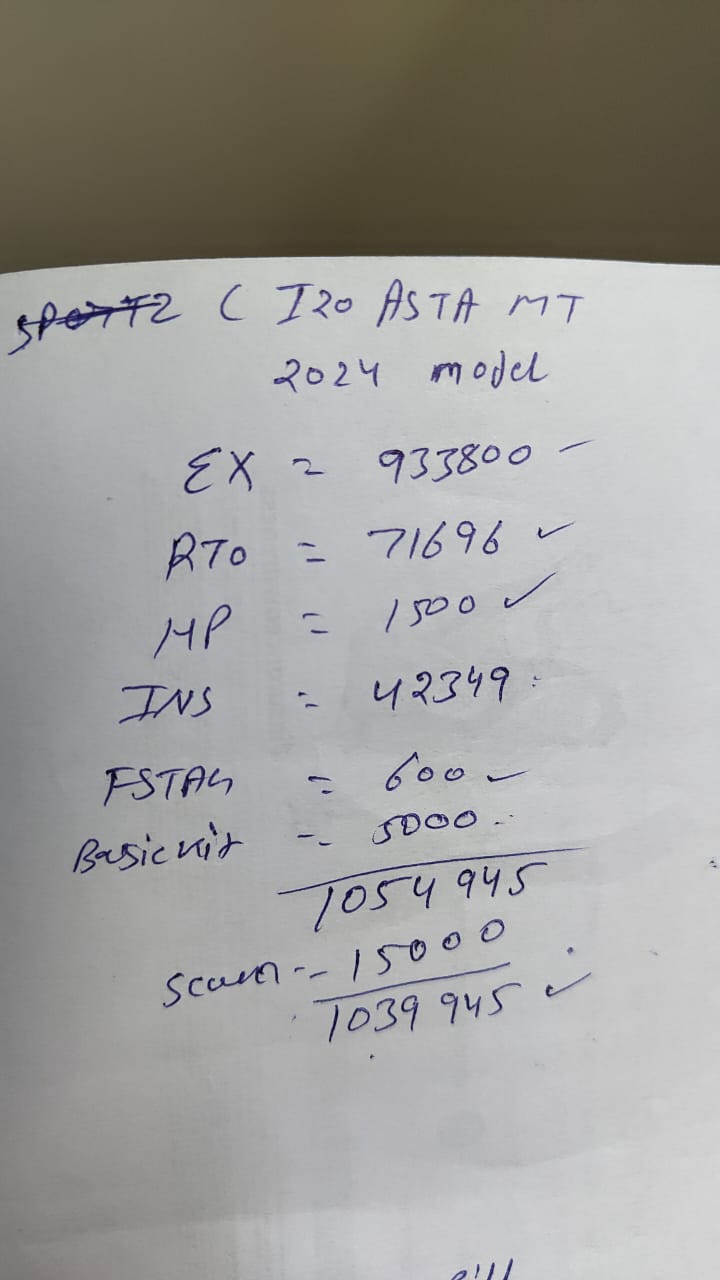 ( I20 ASTA MT
2024 model
EX = 933800 -
RTO = 71696 ✓
HP = 1500 ✓
INS = 42349
FSTAG = 600 -
Basic kit = 5000
1054945
- 15000
1039945 ✓